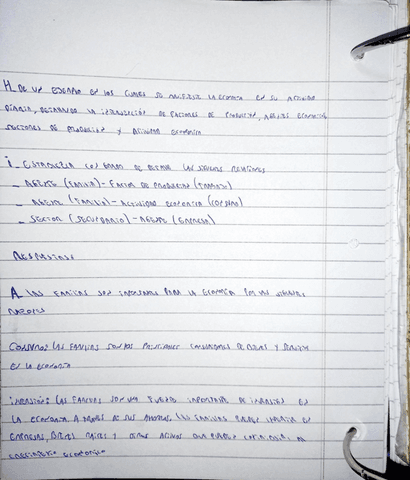 H_ DE UN EJEMPLO EN LOS CUALES SE MANIFIESTE LA ECONOMIA EN SU ACTIVIDAD
DIARIA, DETALLANDO LA INTERVENCIÓN DE FACTORES DE PRODUCCION, AGENTES ECONOMICOS,
SECTORES DE PRODUCCION Y ACTIVIDAD ECONÓMICA
i_ ESTABLEZCA CON GRADO DE DETALLE LAS SIGUIENTES RELACIONES
_ AGENTE (FAMILIA) - FACTOR DE PRODUCCION (TRABAJO)
_ AGENTE (FAMILIA) - ACTIVIDAD ECONOMICA (CONSUMO)
_ SECTOR (SECUNDARIO) - AGENTE (EMPRESA)
RESPUESTAS
A_ LAS FAMILIAS SON IMPORTANTES PARA LA ECONOMÍA POR LAS SIGUIENTES
RAZONES
CONSUMO: LAS FAMILIAS SON LOS PRINCIPALES CONSUMIDORES DE BIENES Y SERVICIOS
EN LA ECONOMIA
INVERSIÓN: LAS FAMILIAS SON UNA FUENTE IMPORTANTE DE INVERSIÓN EN
LA ECONOMIA A TRAVES DE SUS AHORROS. LAS FAMILIAS PUEDEN INVERTIR EN
EMPRESAS, BIENES RAICES Y OTROS ACTIVOS QUE PUEDEN CONTRIBUIR AL
CRECIMIENTO ECONÓMICO